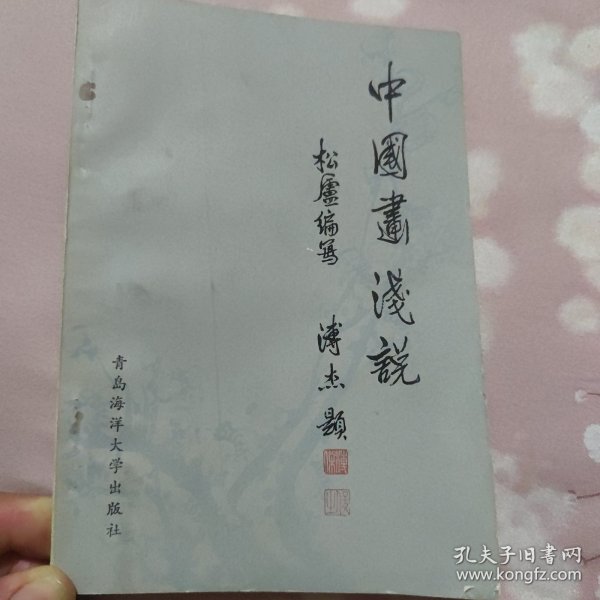 中國畫淺説
松廬编寫
溥杰題
青岛海洋大学出版社
孔夫子旧书网
www.kongfz.com